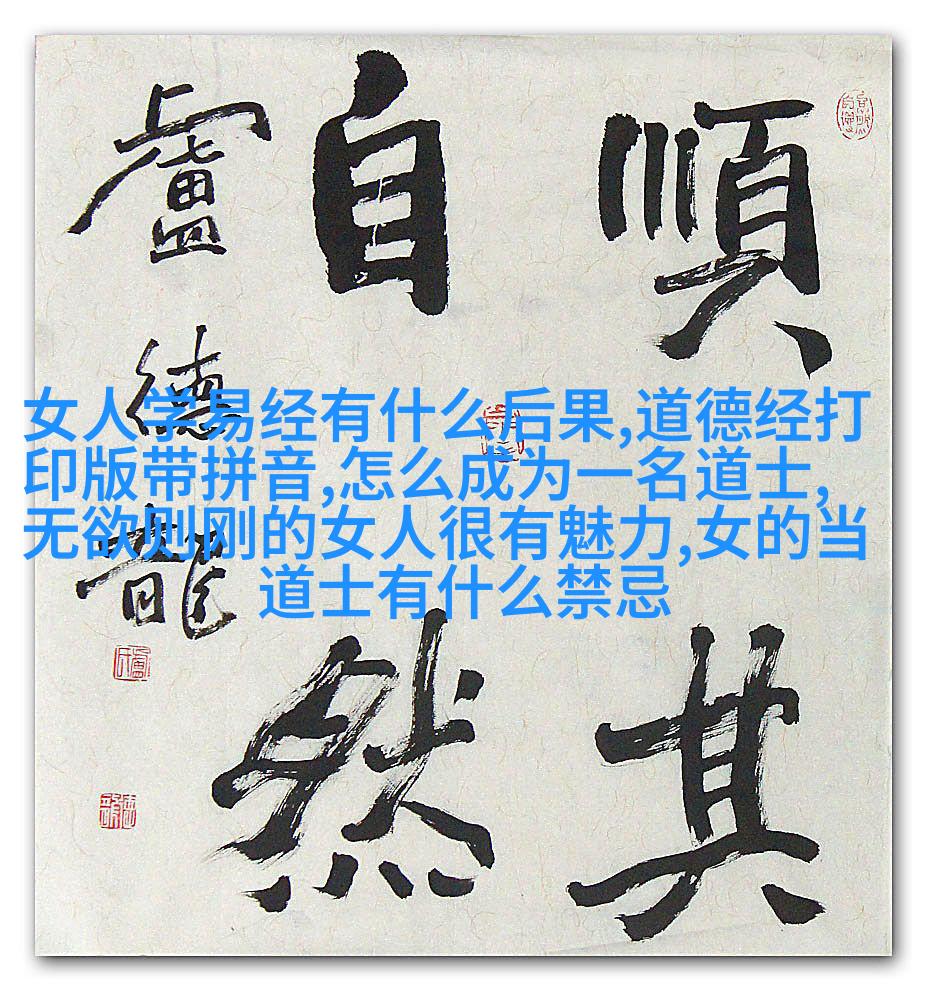 順其
自然
盧德龍
女人学易经有什么后果,道德经打
印版带拼音,怎么成为一名道士,
无欲则刚的女人很有魅力,女的当
道士有什么禁忌